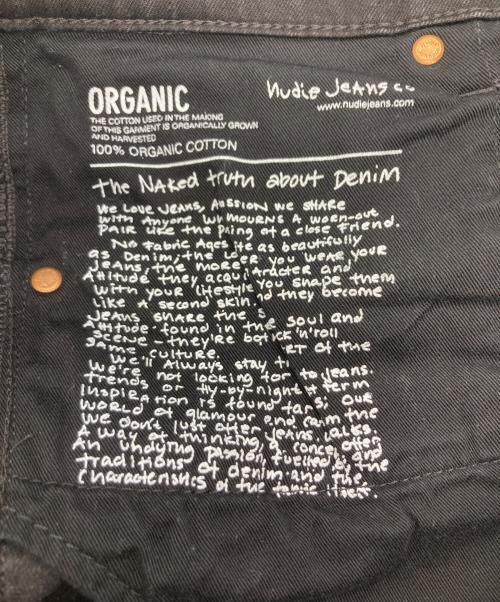 ORGANIC
THE COTTON USED IN THE MAKING
OF THIS GARMENT IS ORGANICALLY GROWN
AND HARVESTED
100% ORGANIC COTTON
Nudie Jeans co
www.nudiejeans.com
The Naked truth about Denim
We Love Jeans, A passion we share
with anyone who mourns a worn-out
pair like the of a close friend.
No Fabric Ages as beautifully
as Denim, the you wear your
Jeans, the more and
Attitude they you shape them
with your lifestyle they become
Like a second skin.
Jeans share the soul and
Attitude found in the 'n' roll
scene - they're of the
same culture.
We'll Always stay to jeans.
We're not looking for term
trends or fly-by-night
Inspiration is found our
world of glamour and the
We don't just offer jeans,
A way of thinking, a
An undying passion, fuelled by the
traditions of denim and the
characteristics of the fabric itself.